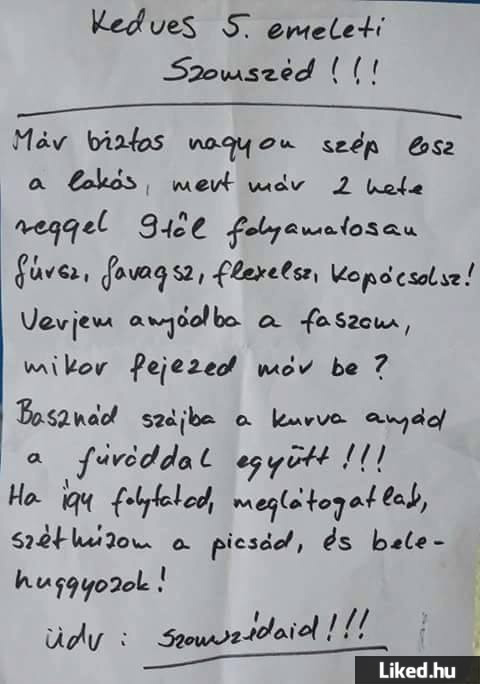 Kedves 5. emeleti
Szomszéd!!!
Már biztos nagyon szép lesz
a lakás, mert már 2 hete
reggel 9től folyamatosan
fúrsz, faragsz, flexelsz, kopácsolsz!
Verjem anyádba a faszom,
mikor fejezed már be?
Basznád szájba a kurva anyád
a fúróddal együtt!!!
Ha így folytatod, meglátogatlak,
széthúzom a picsád, és bele-
huggyozok!
üdv: szomszédaid!!!
Liked.hu